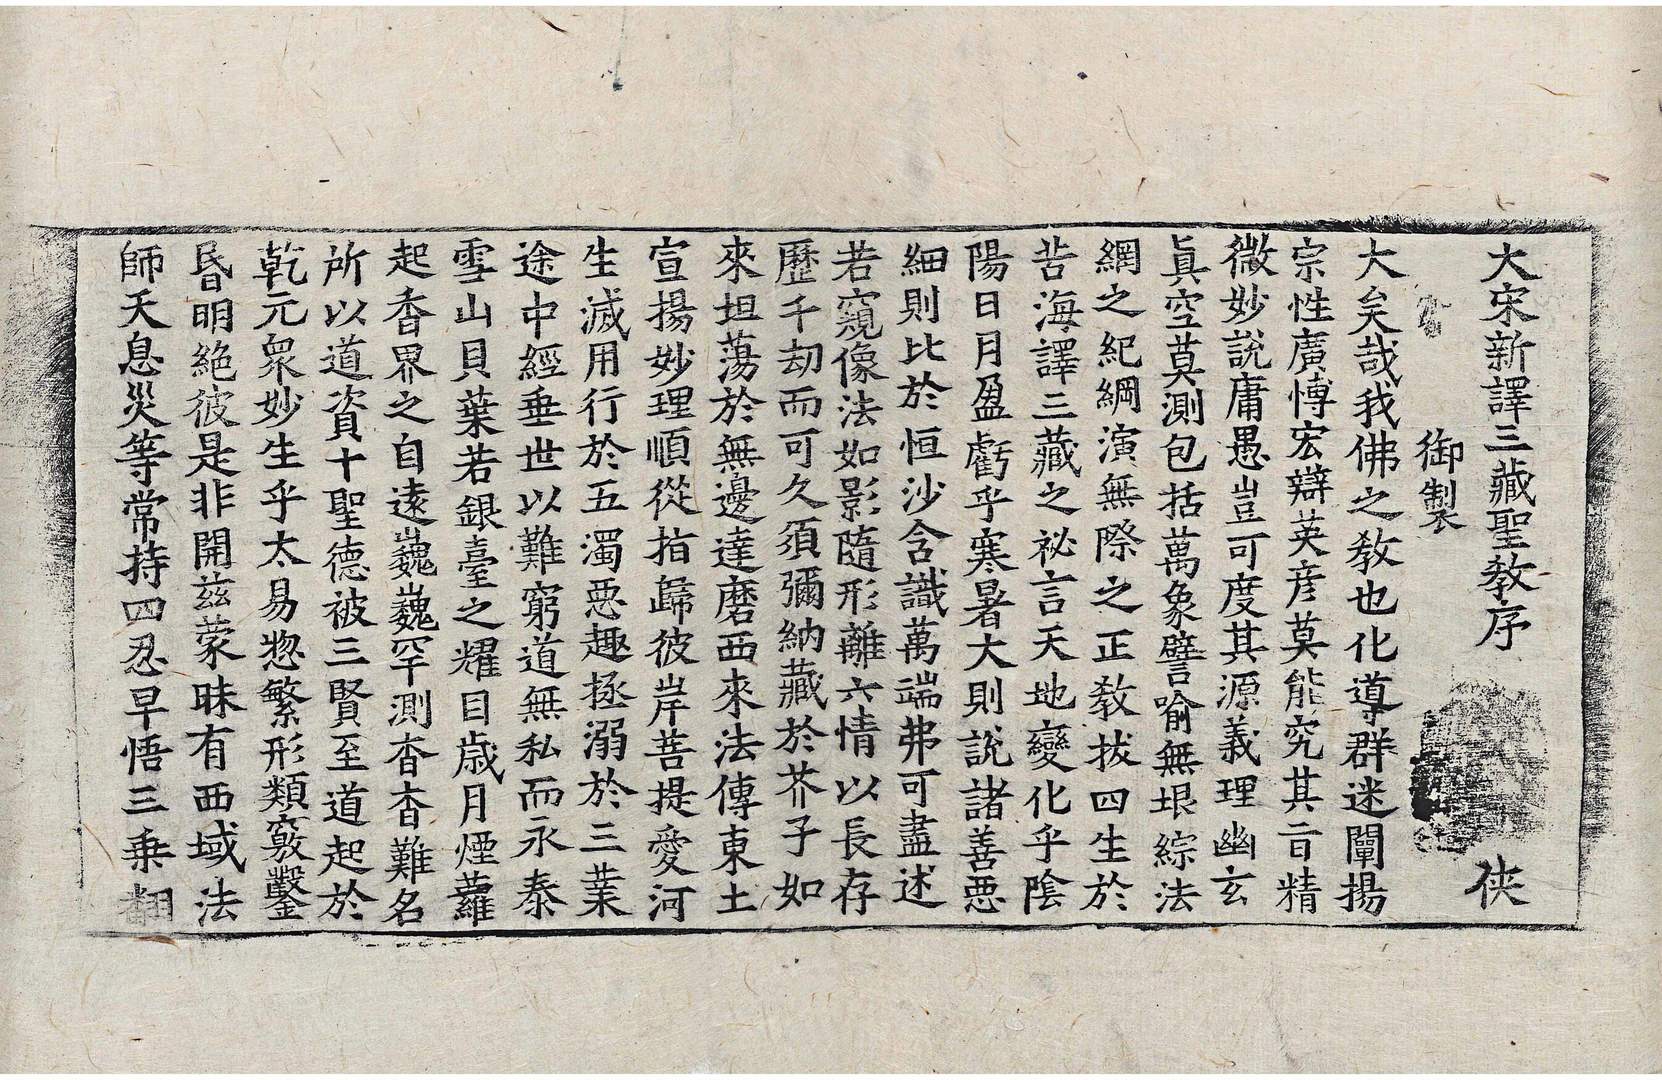 大宋新譯三藏聖教序 俠
御製
大矣哉我佛之教也化導群迷闡揚
宗性廣愽宏辯英彦莫能究其旨精
微妙説庸愚豈可度其源義理幽玄
真空莫測包括萬象譬喻無垠綜法
網之紀綱演無際之正教拔四生於
苦海譯三藏之祕言天地變化乎陰
陽日月盈虧乎寒暑大則說諸善惡
細則比於恒沙含識萬端弗可盡述
若窺像法如影隨形離六情以長存
歷千劫而可久須彌納藏於芥子如
來坦蕩於無邊達磨西來法傳東土
宣揚妙理順從指歸彼岸菩提愛河
生滅用行於五濁惡趣拯溺於三業
途中經垂世以難窮道無私而永泰
雪山貝葉若銀臺之耀目歲月煙蘿
起香界之自遠巍巍罕測杳杳難名
所以道資十聖德被三賢至道起於
乾元衆妙生乎太易惣繁形類竅鑿
昏明絶彼是非開茲蒙昧有西域法
師天息災等常持四忍早悟三乗翻